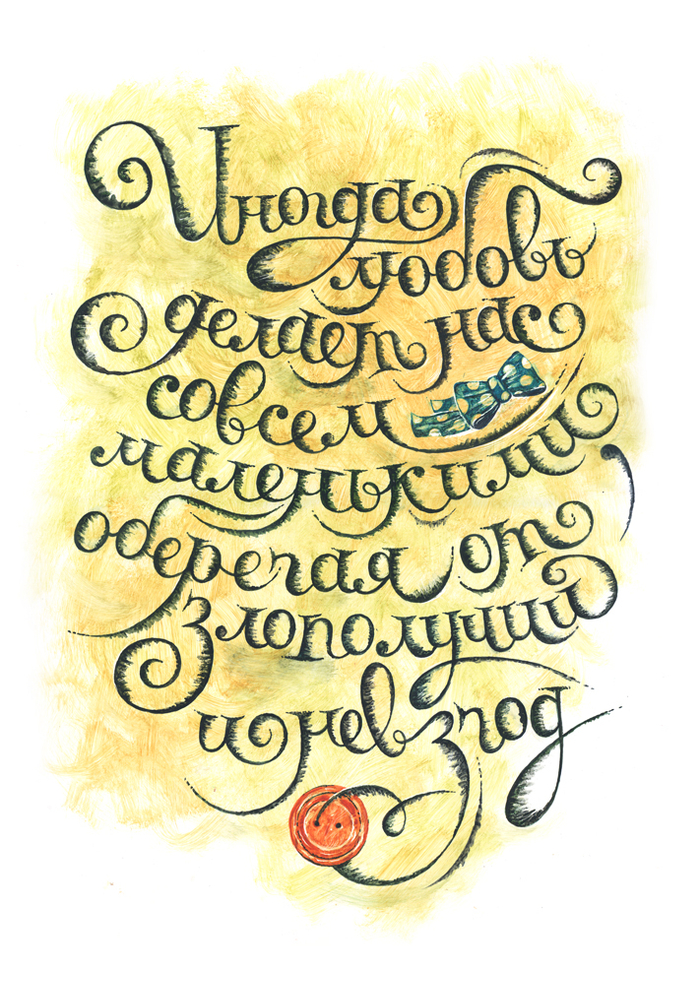 Иногда
любовь
делает нас
совсем
маленькими
оберегая от
злополучий
и невзгод